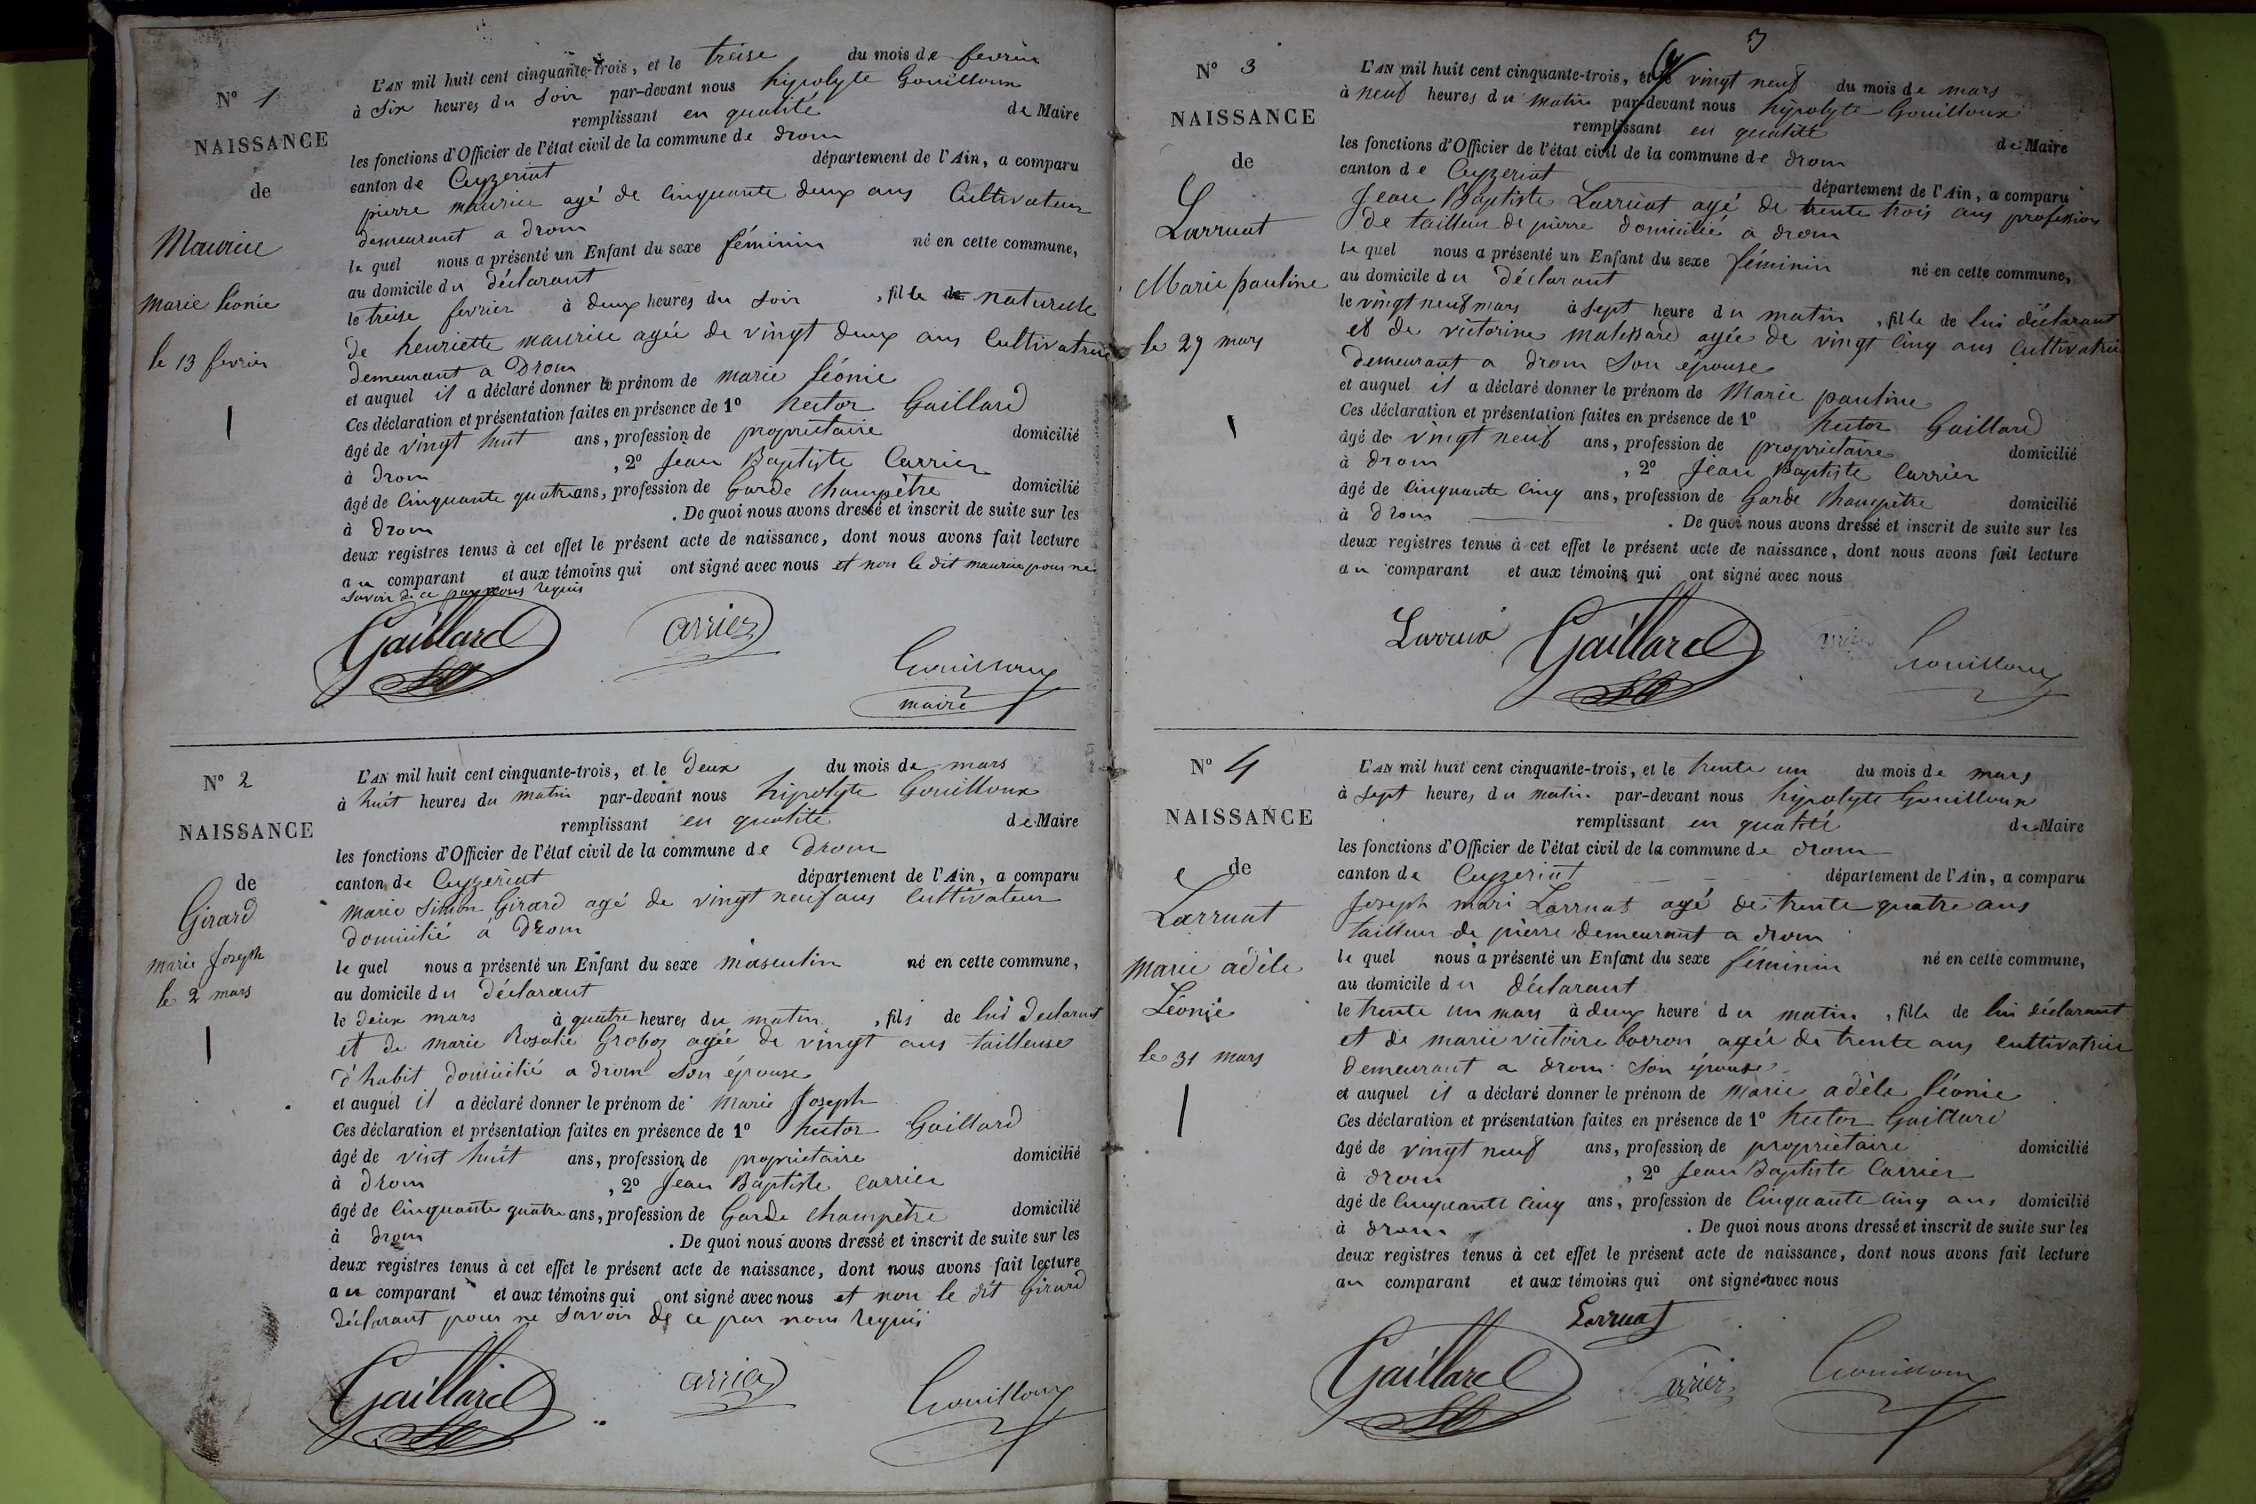 N° 1
NAISSANCE
de
Maurice
marie Léonie
le 13 fevrier
L'AN mil huit cent cinquante-trois, et le treise du mois de fevrier
à Six heures du Soir par-devant nous hipolyte Gouilloux
remplissant en qualité de Maire
les fonctions d'Officier de l'état civil de la commune de drom
canton de Ceyzeriat département de l'Ain, a comparu
pierre maurice agé de Cinquante deux ans Cultivateur
demeurant a drom
le quel nous a présenté un Enfant du sexe féminin né en cette commune,
au domicile du déclarant
le treise fevrier à deux heures du Soir, fille de naturelle
de henriette maurice agée de vingt deux ans Cultivatrice
demeurant a Drom
et auquel il a déclaré donner le prénom de marie Léonie
Ces déclaration et présentation faites en présence de 1° hector Gaillard
âgé de vingt huit ans, profession de propriétaire domicilié
à drom, 2° Jean Baptiste Carrier
âgé de Cinquante quatre ans, profession de Garde Champêtre domicilié
à drom. De quoi nous avons dressé et inscrit de suite sur les
deux registres tenus à cet effet le présent acte de naissance, dont nous avons fait lecture
au comparant et aux témoins qui ont signé avec nous et non le dit maurice pour ne
savoir de ce par nous requis
Gaillard arrier
Gouilloux
maire
N° 2
NAISSANCE
de
Girard
marie Joseph
le 2 mars
L'AN mil huit cent cinquante-trois, et le Deux du mois de mars
à huit heures du matin par-devant nous hipolyte Gouilloux
remplissant en qualité de Maire
les fonctions d'Officier de l'état civil de la commune de Drom
canton de Ceyzeriat département de l'Ain, a comparu
Marie Simon Girard agé de vingt neuf ans Cultivateur
domicilié a Drom
le quel nous a présenté un Enfant du sexe masculin né en cette commune,
au domicile du déclarant
le deux mars à quatre heures du matin, fils de lui Declarant
et de marie Rosalie Groboz agée de vingt ans tailleuse
d'habit domicilié a drom Son épouse
et auquel il a déclaré donner le prénom de Marie Joseph
Ces déclaration et présentation faites en présence de 1° hector Gaillard
âgé de vint huit ans, profession de propriétaire domicilié
à drom, 2° Jean Baptiste Carrier
âgé de Cinquante quatre ans, profession de Garde Champêtre domicilié
à drom. De quoi nous avons dressé et inscrit de suite sur les
deux registres tenus à cet effet le présent acte de naissance, dont nous avons fait lecture
au comparant et aux témoins qui ont signé avec nous et non le dit Girard
déclarant pour ne Savoir de ce par nous requis
Gaillard arrier Gouilloux
3
N° 3
NAISSANCE
de
Larruat
Marie pauline
le 29 mars
L'AN mil huit cent cinquante-trois, et le vingt neuf du mois de mars
à neuf heures du matin par-devant nous hipolyte Gouilloux
remplissant en qualité de Maire
les fonctions d'Officier de l'état civil de la commune de drom
canton de Ceyzeriat département de l'Ain, a comparu
Jean Baptiste Larruat agé de trente trois ans profession
de tailleur de pierre domicilié a drom
le quel nous a présenté un Enfant du sexe féminin né en cette commune,
au domicile du déclarant
le vingt neuf mars à Sept heure du matin, fille de lui déclarant
et de victorine agée de vingt Cinq ans Cultivatrice
demeurant a drom Son épouse
et auquel il a déclaré donner le prénom de Marie pauline
Ces déclaration et présentation faites en présence de 1° hector Gaillard
âgé de vingt neuf ans, profession de propriétaire domicilié
à drom, 2° Jean Baptiste Carrier
âgé de Cinquante Cinq ans, profession de Garde Champêtre domicilié
à drom. De quoi nous avons dressé et inscrit de suite sur les
deux registres tenus à cet effet le présent acte de naissance, dont nous avons fait lecture
au comparant et aux témoins qui ont signé avec nous
Gaillard Gouilloux
N° 4
NAISSANCE
de
Larruat
Marie adèle
Léonie
le 31 mars
L'AN mil huit cent cinquante-trois, et le trente un du mois de mars
à Sept heures du matin par-devant nous hipolyte Gouilloux
remplissant en qualité de Maire
les fonctions d'Officier de l'état civil de la commune de drom
canton de Ceyzeriat département de l'Ain, a comparu
Joseph mari Larruat agé de trente quatre ans
tailleur de pierre demeurant a drom
le quel nous a présenté un Enfant du sexe féminin né en cette commune,
au domicile du déclarant
le trente un mars à deux heure du matin, fille de lui déclarant
et de marie victoire borron agée de trente ans Cultivatrice
demeurant a drom Son épouse
et auquel il a déclaré donner le prénom de Marie adèle Léonie
Ces déclaration et présentation faites en présence de 1° hector Gaillard
âgé de vingt neuf ans, profession de propriétaire domicilié
à drom, 2° Jean Baptiste Carrier
âgé de Cinquante Cinq ans, profession de Cinquante cinq ans domicilié
à drom. De quoi nous avons dressé et inscrit de suite sur les
deux registres tenus à cet effet le présent acte de naissance, dont nous avons fait lecture
au comparant et aux témoins qui ont signé avec nous
Larruat
Gaillard arrier Gouilloux